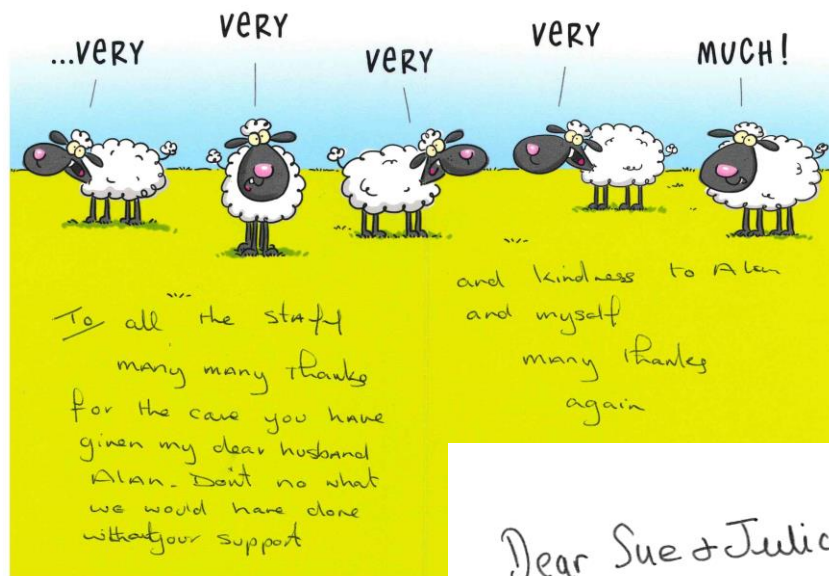 ...VERY
VERY
VERY
VERY
MUCH!
To all the staff
many many thanks
for the care you have
given my dear husband
Alan. Don't no what
we would have done
without your support
and kindness to Alan
and myself
many thanks
again
Dear Sue & Julie